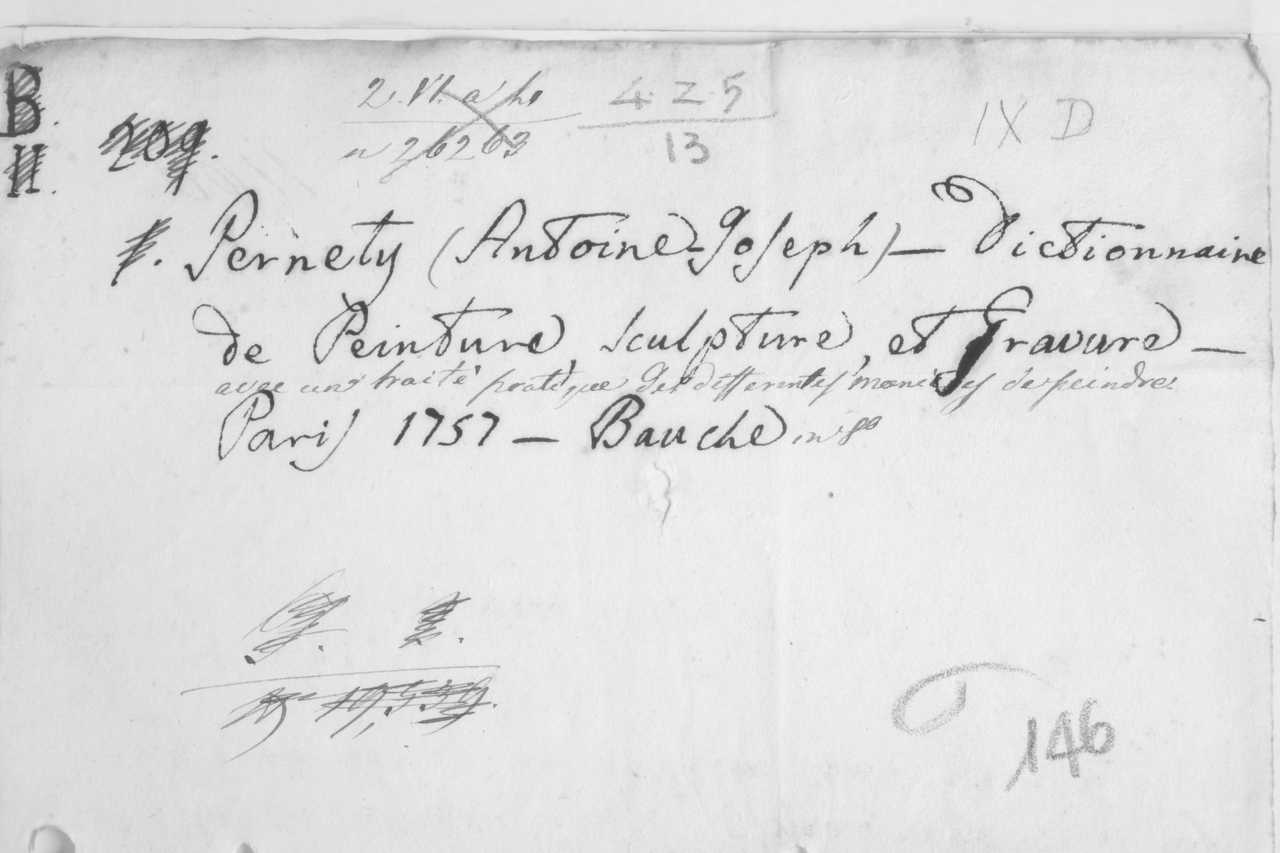 B.
H.
209.
2. Vl. a h.
n 26263
4.Z.5
13
IX D
Pernety (Antoine-Joseph) — Dictionnaire
de Peinture, Sculpture, et Gravure —
avec un traité pratique des differentes manieres de peindre
Paris 1757 — Bauche in 8º
19,539.
146